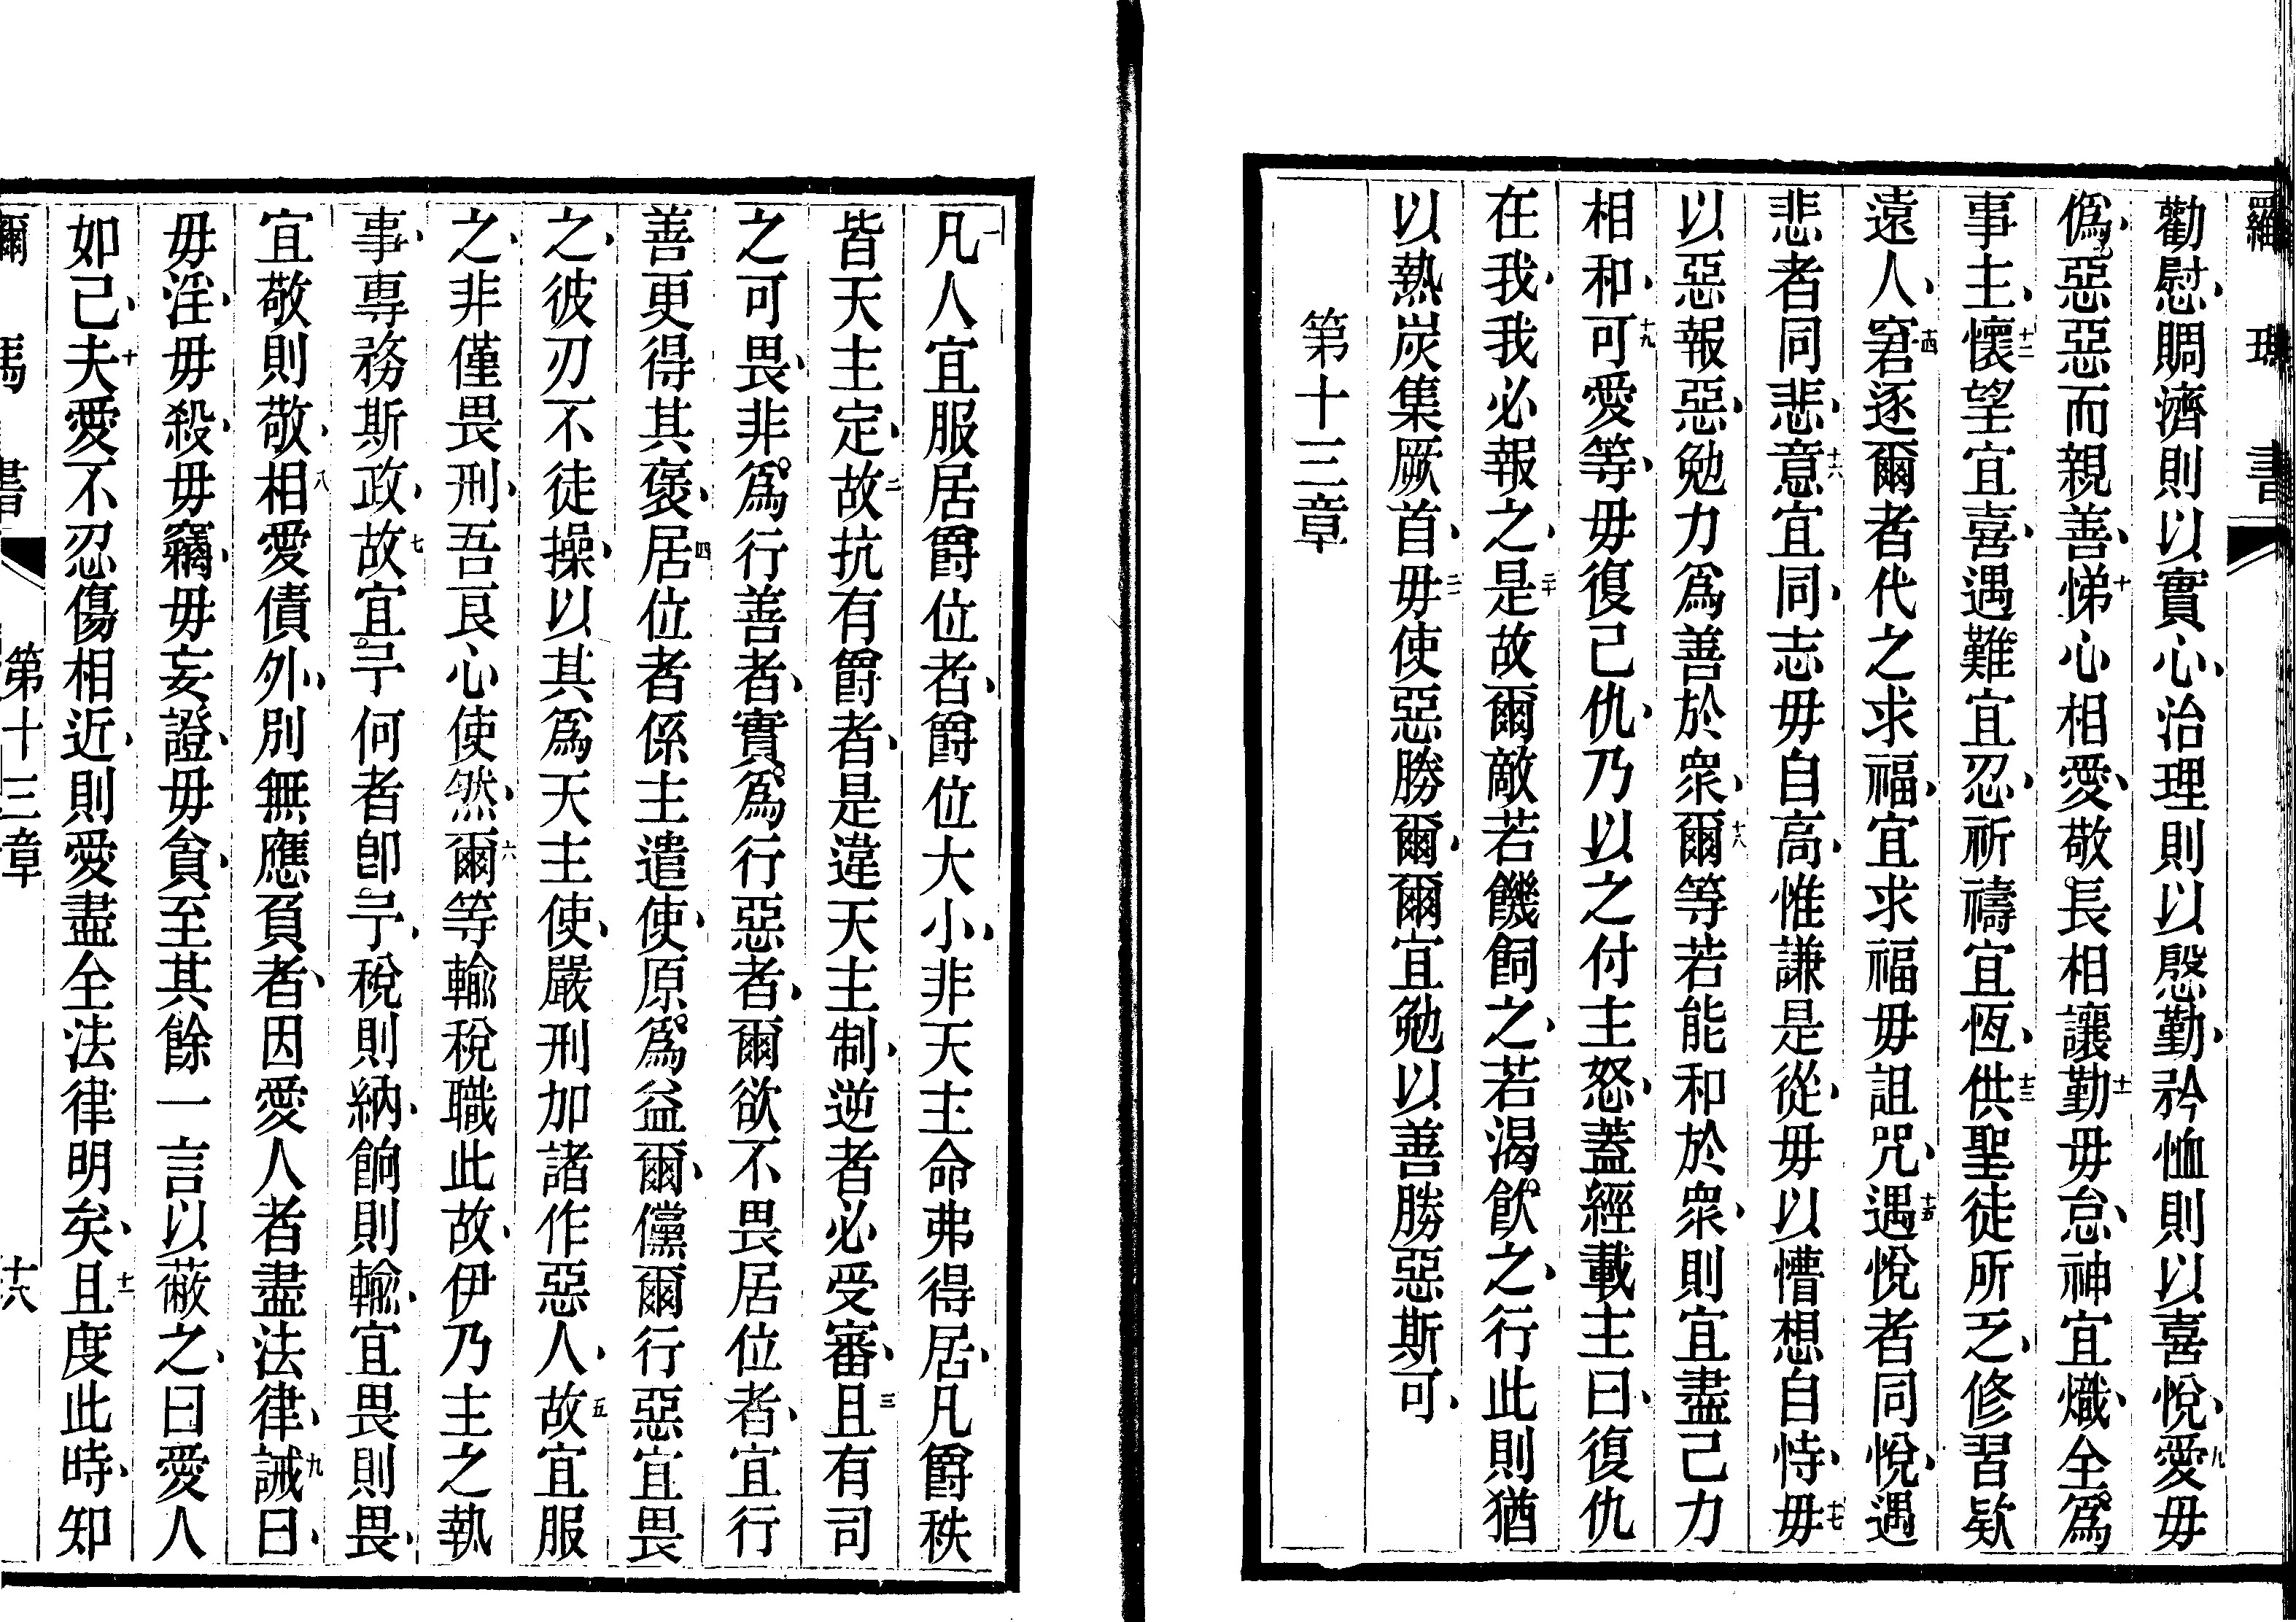 羅瑪書
勸慰、賙濟則以實心、治理則以慇勤、矜恤則以喜悅、九愛毋
僞、惡惡而親善、十悌心相愛、敬長相讓、十一勤毋怠、神宜熾、全爲
事主、十二懷望宜喜、遇難宜忍、祈禱宜恆、十三供聖徒所乏、修習欵
遠人、十四窘逐爾者代之求福、宜求福毋詛咒、十五遇悅者同悅、遇
悲者同悲、十六意宜同、志毋自高、惟謙是從、毋以懵想自恃、十七毋
以惡報惡、勉力爲善於衆、十八爾等若能和於衆、則宜盡己力
相和、十九可愛等、毋復己仇、乃以之付主怒、蓋經載主曰、復仇
在我、我必報之、二十是故爾敵若饑飼之、若渴飲之、行此則猶
以熱炭集厥首、二一毋使惡勝爾、爾宜勉以善勝惡斯可、
第十三章
一凡人宜服居爵位者、爵位大小、非天主命弗得居、凡爵秩
皆天主定、二故抗有爵者、是違天主制、逆者必受審、三且有司
之可畏、非爲行善者、實爲行惡者、爾欲不畏居位者、宜行
善更得其褒、四居位者係主遣使、原爲益爾、儻爾行惡宜畏
之、彼刃不徒操、以其爲天主使、嚴刑加諸作惡人、五故宜服
之、非僅畏刑、吾良心使然、六爾等輸稅職此故、伊乃主之執
事、專務斯政、七故宜予何者卽予、稅則納、餉則輸、宜畏則畏、
宜敬則敬、八相愛債外、別無應負者、因愛人者盡法律、九誡曰、
毋淫、毋殺、毋竊、毋妄證、毋貪、至其餘一言以蔽之、曰愛人
如己、十夫愛不忍傷相近、則愛盡全法律明矣、十一且度此時、知
羅瑪書 第十三章 十八